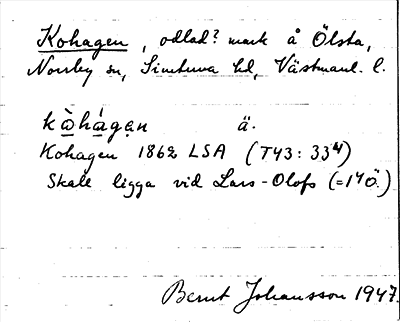 Kohagen, odlad? mark å Ölsta,
Norrby sn, Simtuna hd, Västmanl. l.
kὼhágan ä.
Kohagen 1862 LSA (T43: 33⁴)
Skall ligga vid Lars-Olofs (=1⁴Ö.)
Bernt Johansson 1947.